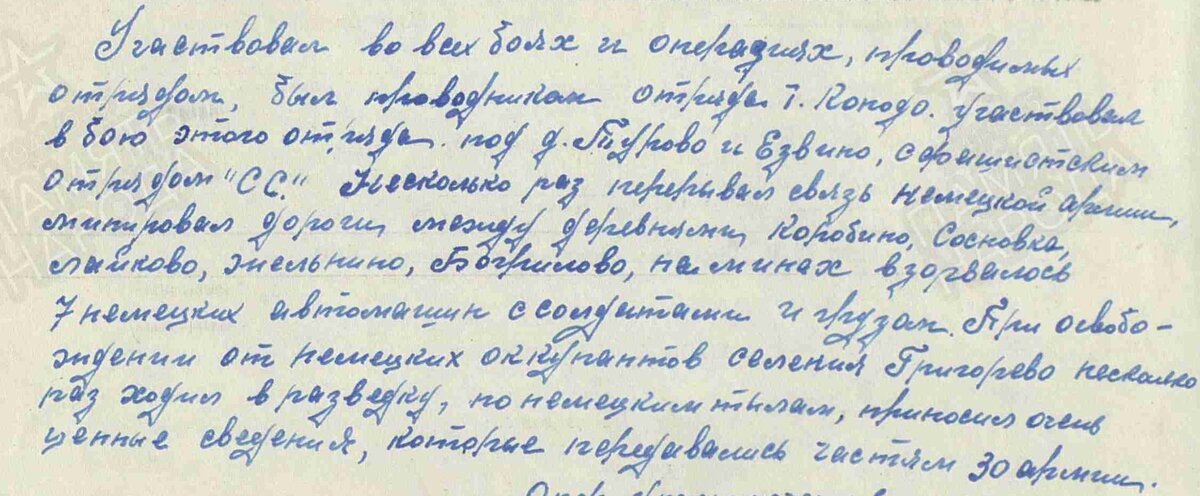 Участвовал во всех боях и операциях, проводимых
отрядом, был проводником отряда т. Конодо. Участвовал
в бою этого отряда. под д. Турово и Езвино, с фашистским
отрядом "СС". Несколько раз перерывал связь немецкой армии,
минировал дороги, между деревнями, Коробино, Сосновка,
Майково, Жельнино, на минах взорвалось
7 немецких автомашин с солдатами и грузом. При освобо-
ждении от немецких оккупантов селения Григорево несколько
раз ходил в разведку, по немецким тылам, приносил очень
ценные сведения, которые передавались частям 30 армии.